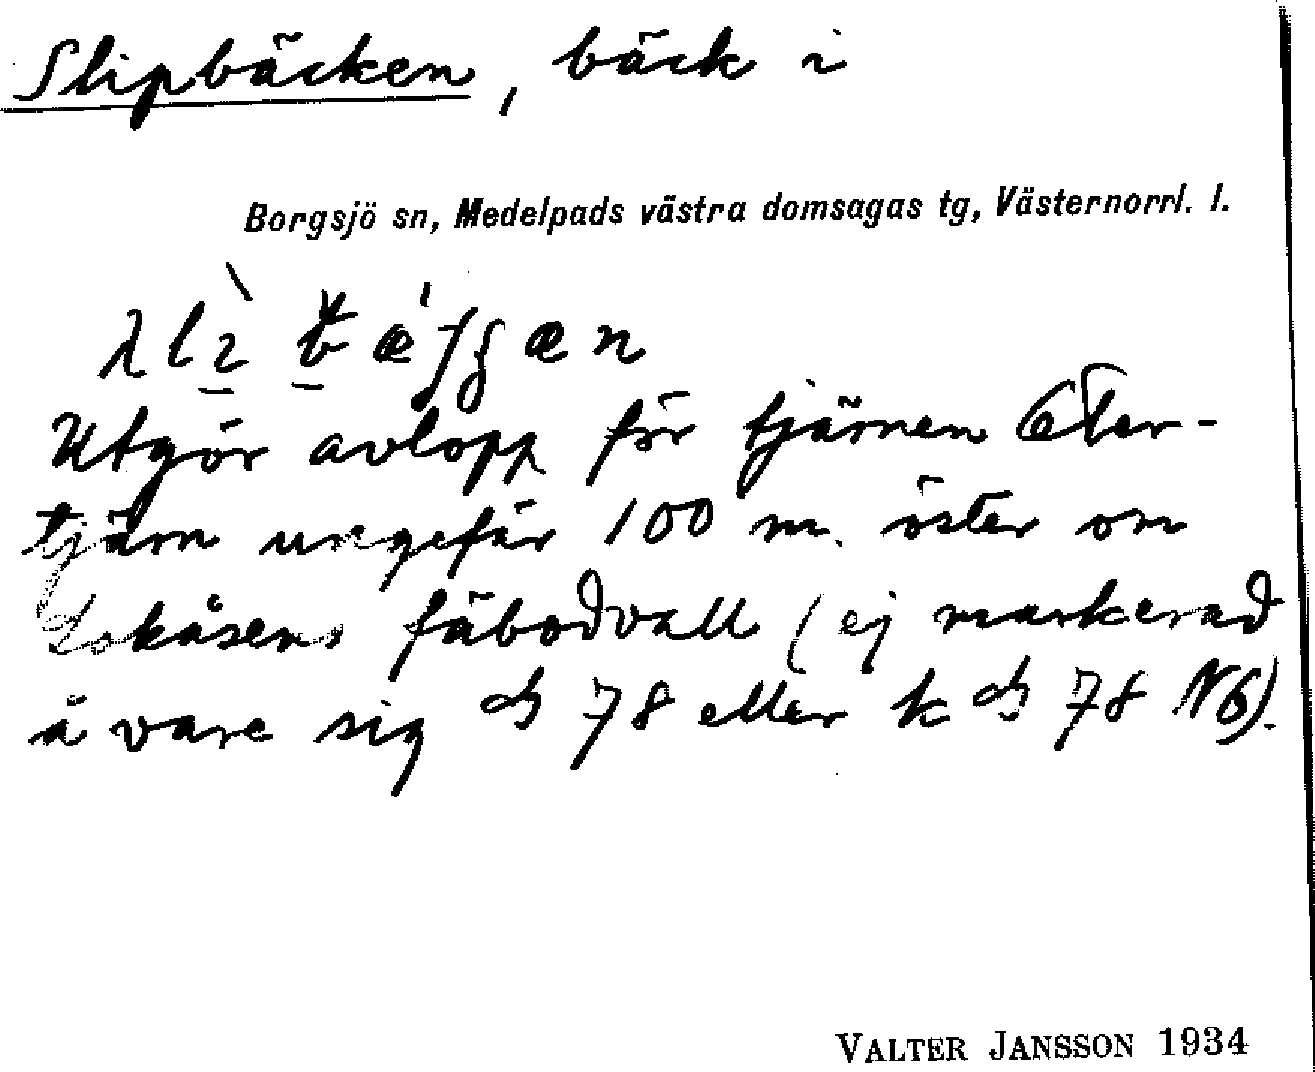 Slipbäcken, bäck i
Borgsjö sn, Medelpads västra domsagas tg, Västernorrl. l.
Utgör avlopp för tjärnen
tjärn ungefär 100 m. öster om
fäbodvall (ej markerad
å vare sig 78 eller k 78 N6).
VALTER JANSSON 1934